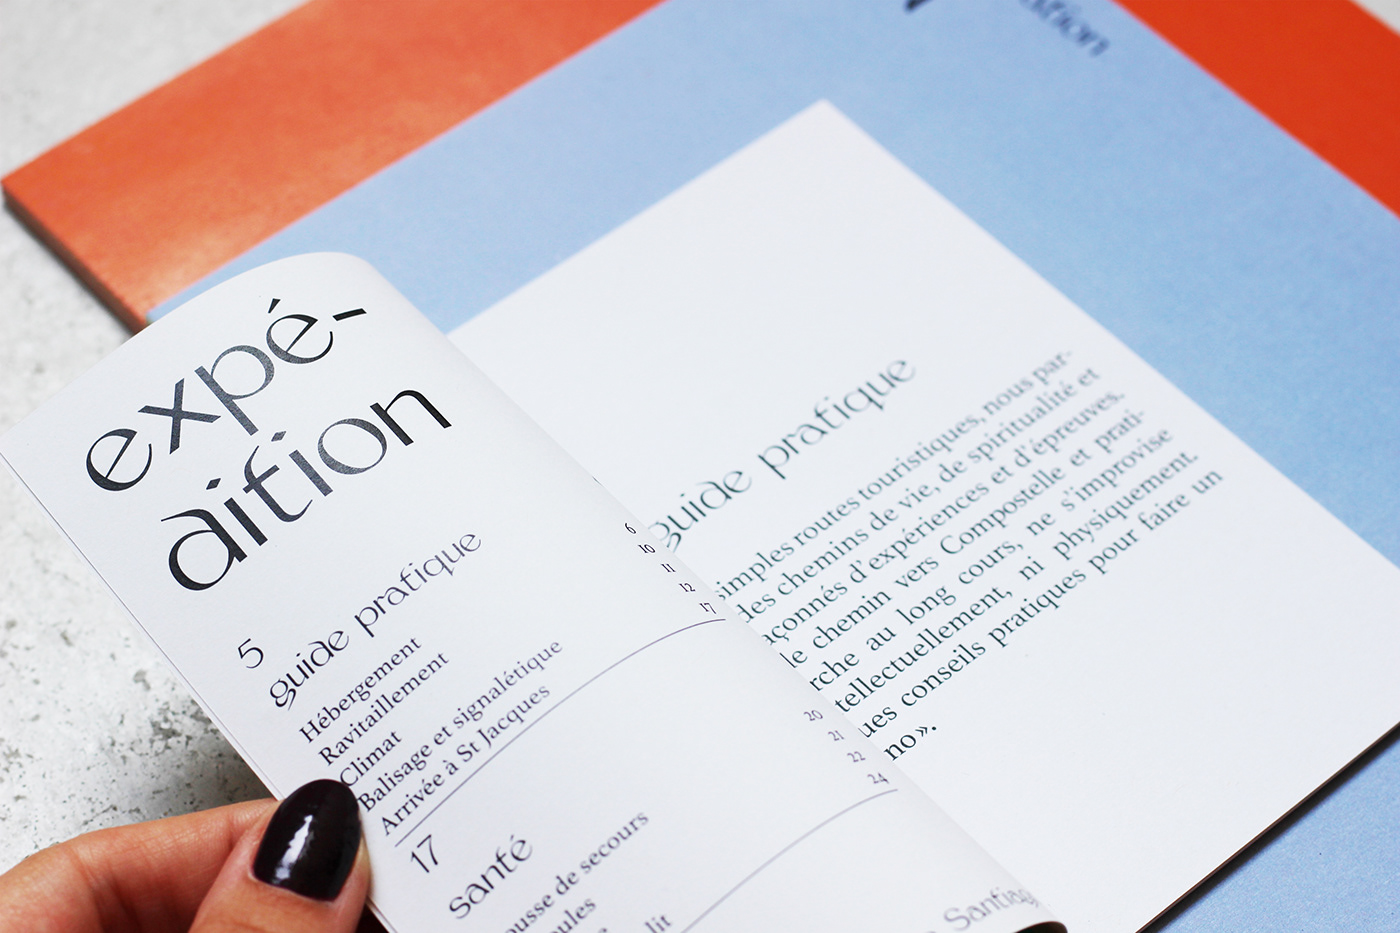 expé-
dition
5
guide pratique
Hébergement 6
Ravitaillement 10
Climat 11
Balisage et signalétique 12
Arrivée à St Jacques 17
17
santé
de secours 20
21
lit 22
24
guide pratique
simples routes touristiques, nous par-
des chemins de vie, de spiritualité et
d’expériences et d’épreuves.
le chemin vers Compostelle et prati-
au long cours, ne s’improvise
ni physiquement.
conseils pratiques pour faire un
no».